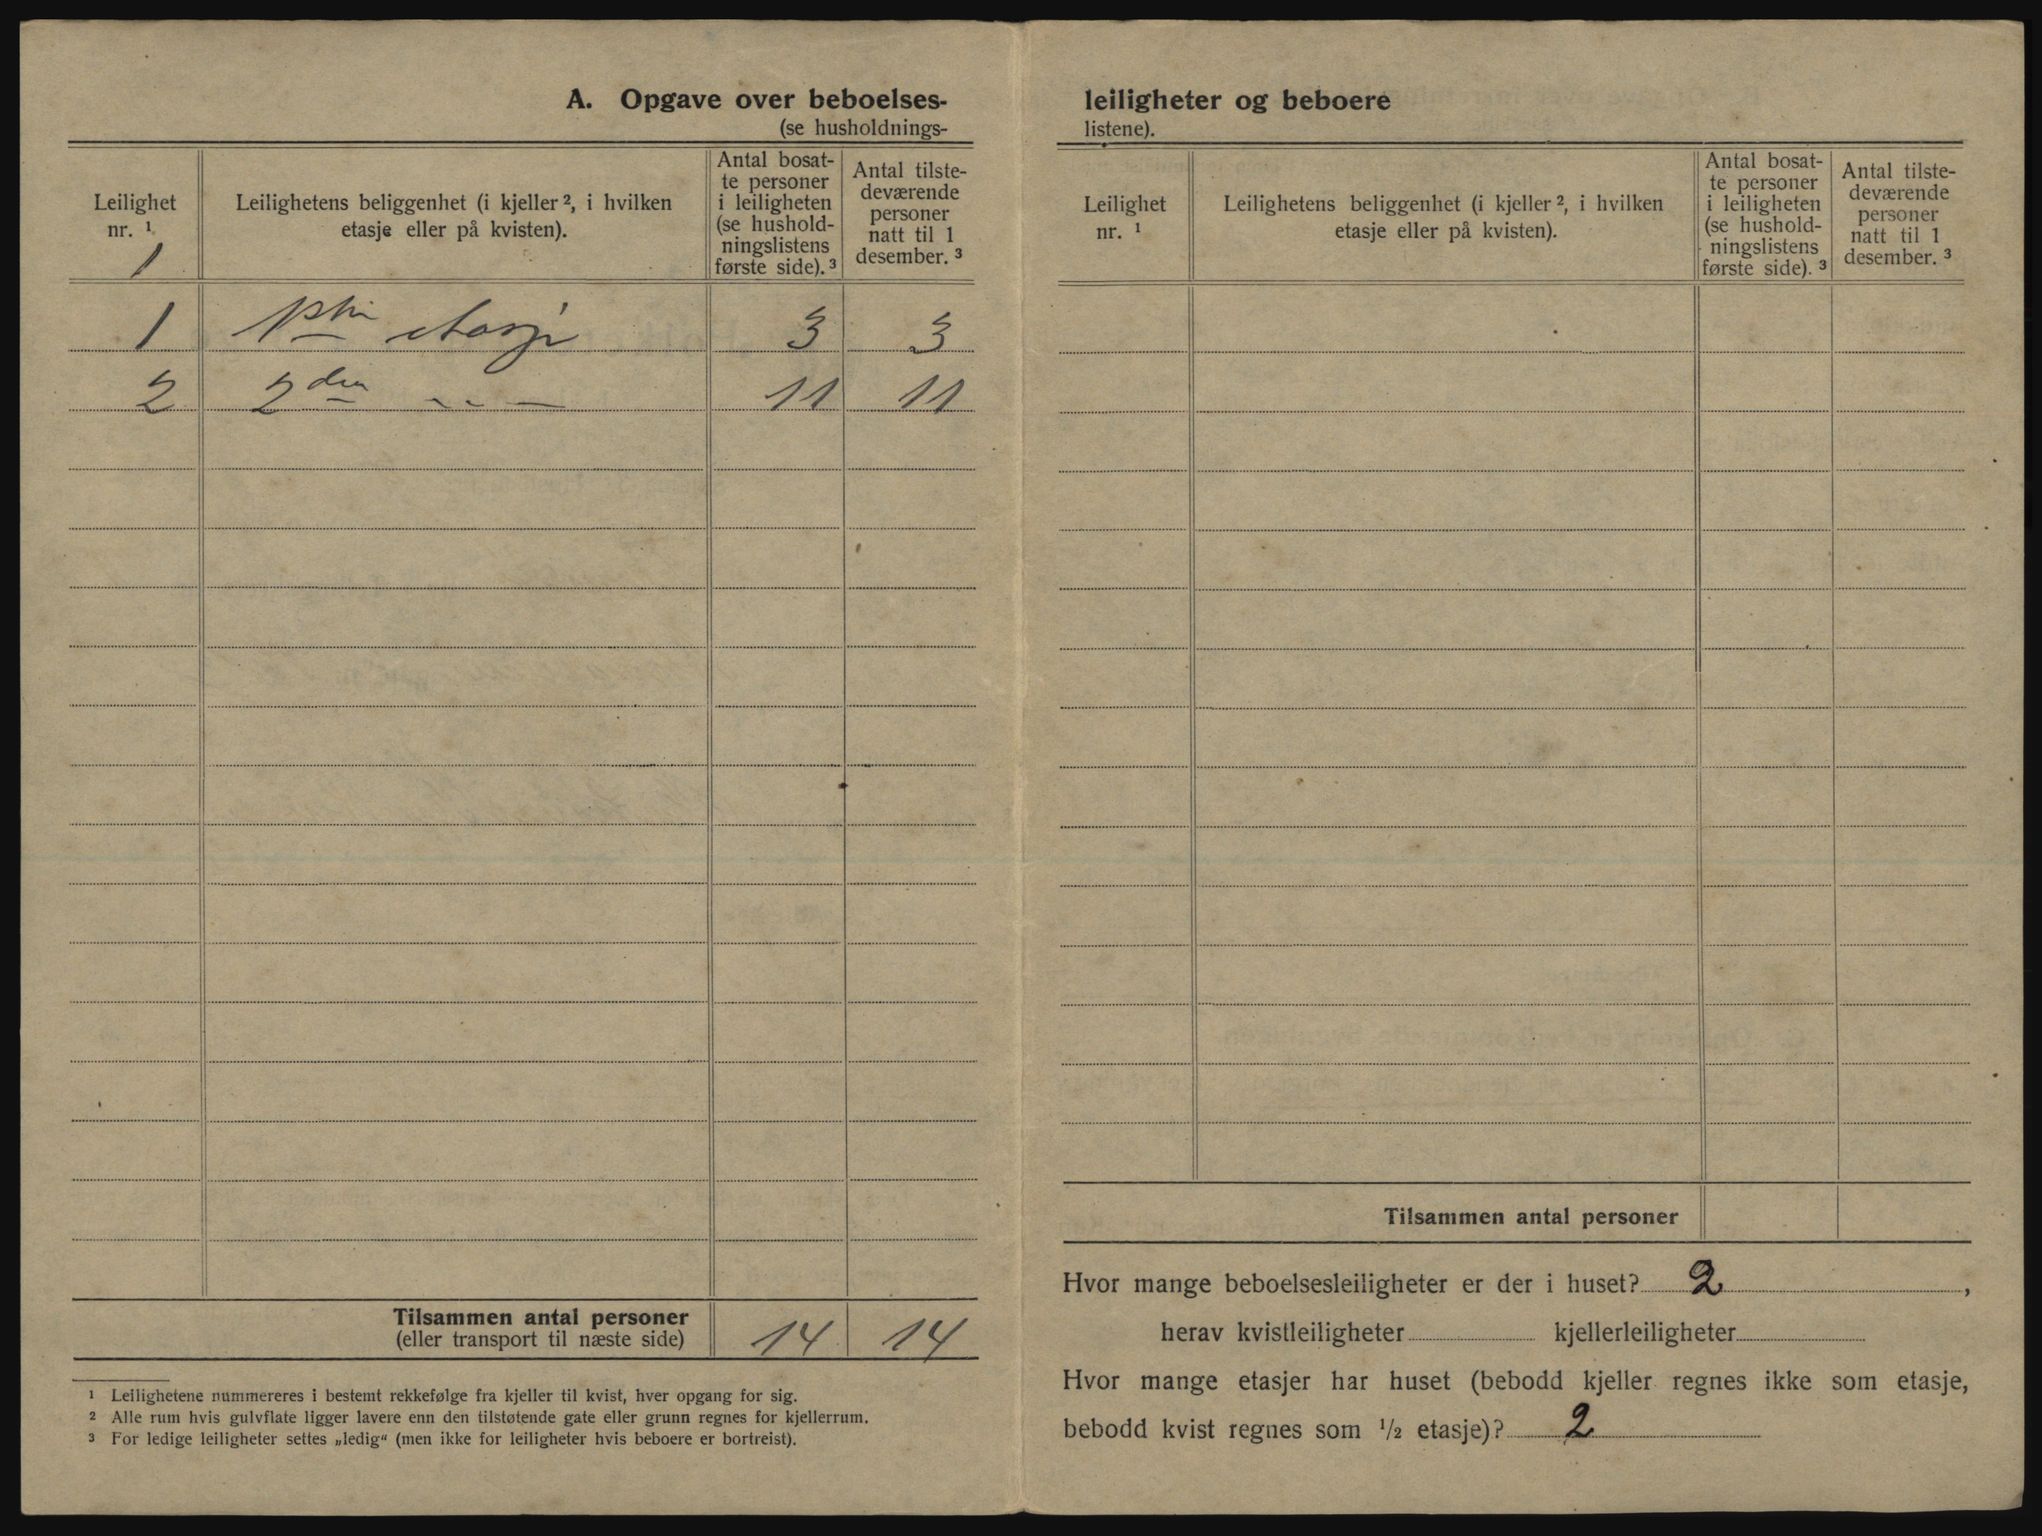 A. Opgave over beboelses-
(se husholdnings-
Leilighet
nr. ¹
1
Leilighetens beliggenhet (i kjeller ², i hvilken
etasje eller på kvisten).
Antal bosat-
te personer
i leiligheten
(se hushold-
ningslistens
første side). ³
Antal tilste-
deværende
personer
natt til 1
desember. ³
1 1ste etasje 3 3
2 2den - - — 11 11
Tilsammen antal personer
(eller transport til næste side) 14 14
¹ Leilighetene nummereres i bestemt rekkefølge fra kjeller til kvist, hver opgang for sig.
² Alle rum hvis gulvflate ligger lavere enn den tilstøtende gate eller grunn regnes for kjellerrum.
³ For ledige leiligheter settes „ledig“ (men ikke for leiligheter hvis beboere er bortreist).
leiligheter og beboere
listene).
Leilighet
nr. ¹
Leilighetens beliggenhet (i kjeller ², i hvilken
etasje eller på kvisten).
Antal bosat-
te personer
i leiligheten
(se hushold-
ningslistens
første side). ³
Antal tilste-
deværende
personer
natt til 1
desember. ³
Tilsammen antal personer
Hvor mange beboelsesleiligheter er der i huset? 2 ,
herav kvistleiligheter kjellerleiligheter
Hvor mange etasjer har huset (bebodd kjeller regnes ikke som etasje,
bebodd kvist regnes som ½ etasje)? 2